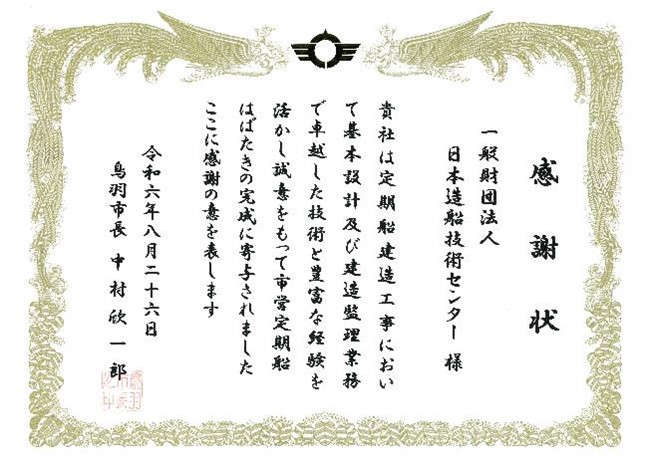 感謝状
一般財団法人
日本造船技術センター 様
貴社は定期船建造工事におい
て基本設計及び建造監理業務
で卓越した技術と豊富な経験を
活かし誠意をもって市営定期船
はばたきの完成に寄与されました
ここに感謝の意を表します
令和六年八月二十六日
鳥羽市長 中村欣一郎